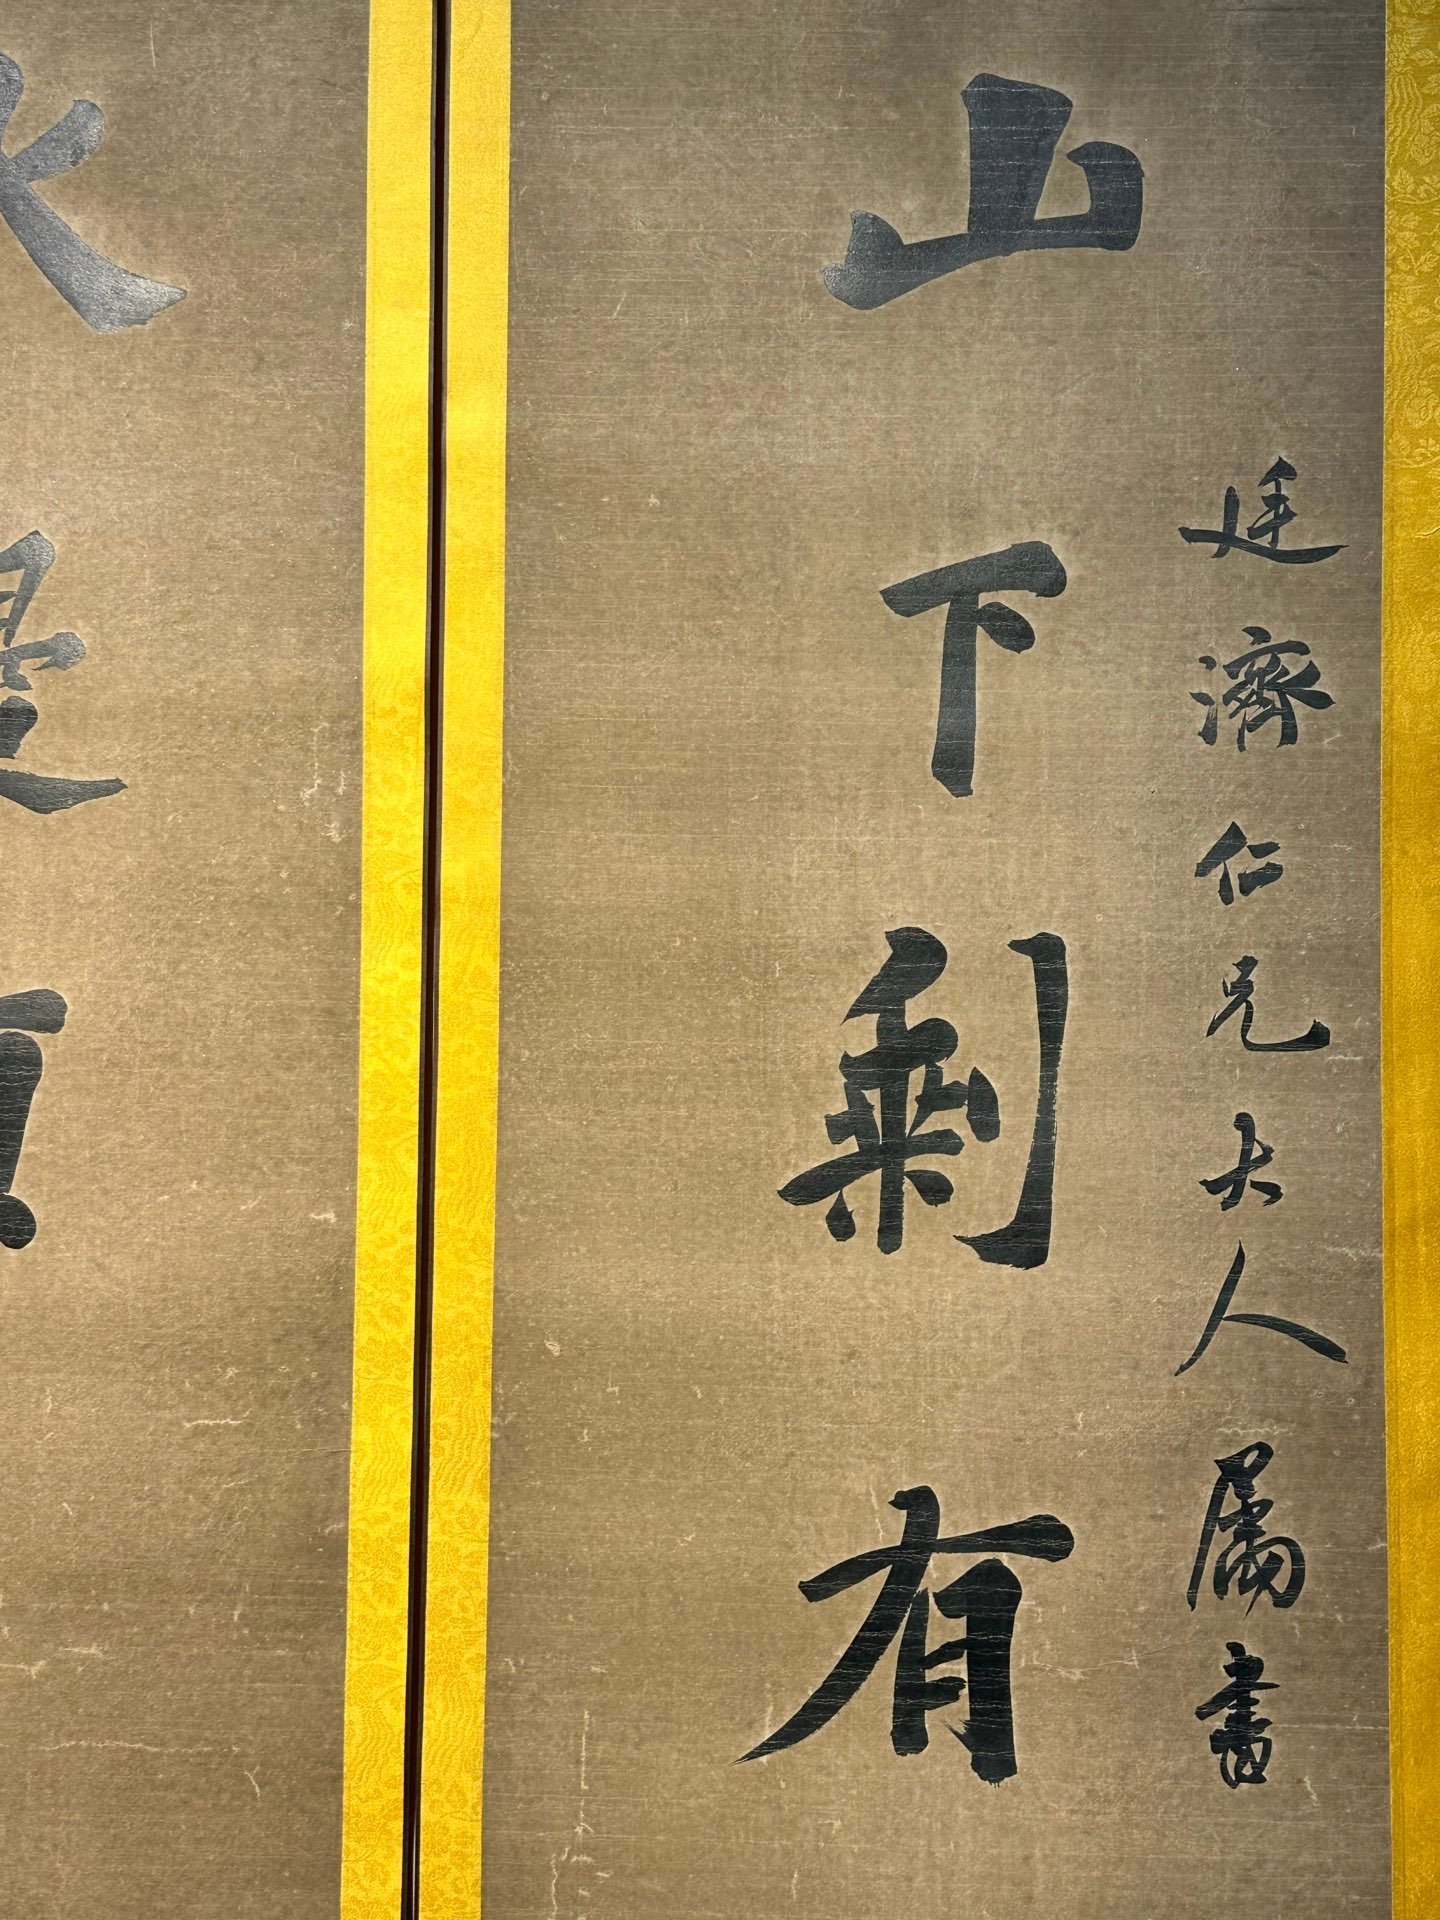 廷濟仁兄大人屬書
山下剩有
水